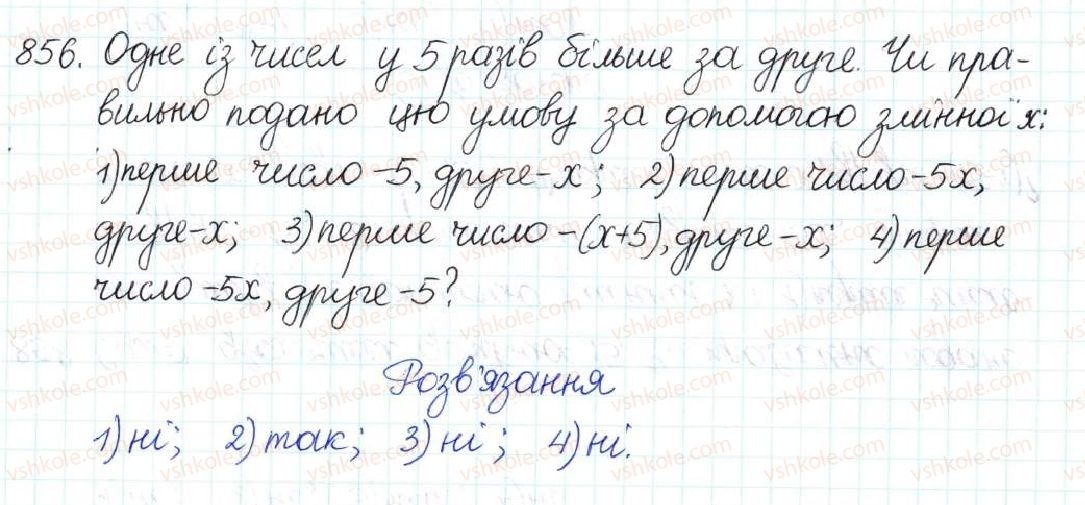 856. Одне із чисел у 5 разів більше за друге. Чи пра-
вильно подано цю умову за допомогою змінної х:
1) перше число - 5, друге - х; 2) перше число - 5х,
друге - х; 3) перше число - (х+5), друге - х; 4) перше
число - 5х, друге - 5?
Розв'язання
1) ні; 2) так; 3) ні; 4) ні.